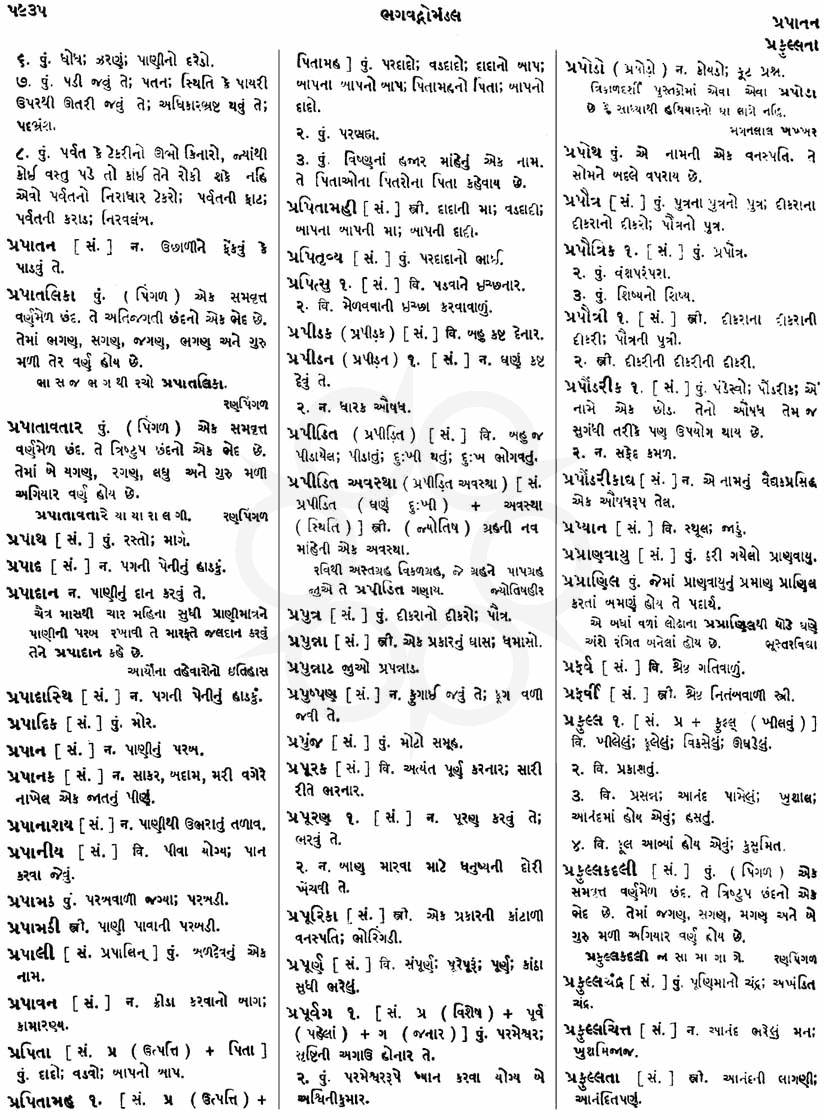 ૫૯૩૫
ભગવદ્ગોમંડલ
પ્રપાતન
પ્રફુલ્લતા
૬. પું. ધોધ; ઝરણું; પાણીનો દરેડો.
૭. પું. પડી જવું તે; પતન; સ્થિતિ કે પાયરી
ઉપરથી ઊતરી જવું તે; અધિકારભ્રષ્ટ થવું તે;
પદભ્રંશ.
૮. પું. પર્વત કે ટેકરીનો ઊભો કિનારો, જ્યાંથી
કોઈ વસ્તુ પડે તો કાંઈ તેને રોકી શકે નહિ
એવો પર્વતનો નિરાધાર ટેકરો; પર્વતની ફાટ;
પર્વતની કરાડ; નિરવલંબ.
પ્રપાતન [ સં. ] ન. ઉછાળીને ફેંકવું કે
પાડવું તે.
પ્રપાતલિકા પું. ( પિંગળ ) એક સમવૃત્ત
વર્ણમેળ છંદ. તે અતિજગતી છંદનો એક ભેદ છે.
તેમાં ભગણ, સગણ, જગણ, ભગણ અને ગુરુ
મળી તેર વર્ણ હોય છે.
ભા સ જ ભ ગ થી રચો પ્રપાતલિકા.
રણપિંગળ
પ્રપાતાવતાર પું. ( પિંગળ ) એક સમવૃત્ત
વર્ણમેળ છંદ. તે ત્રિષ્ટુપ છંદનો એક ભેદ છે.
તેમાં બે યગણ, રગણ, લઘુ અને ગુરુ મળી
અગિયાર વર્ણ હોય છે.
પ્રપાતાવતારે યા યા રા લ ગી. રણપિંગળ
પ્રપાથ [ સં. ] પું. રસ્તો; માર્ગ.
પ્રપાદ [ સં. ] ન. પગની પેનીનું હાડકું.
પ્રપાદાન ન. પાણીનું દાન કરવું તે.
ચૈત્ર માસથી ચાર મહિના સુધી પ્રાણીમાત્રને
પાણીની પરબ રખાવી તે મારફતે જલદાન કરવું
તેને પ્રપાદાન કહે છે.
આર્યોના તહેવારોનો ઇતિહાસ
પ્રપાદાસ્થિ [ સં. ] ન. પગની પેનીનું હાડકું.
પ્રપાદિક [ સં. ] પું. મોર.
પ્રપાન [ સં. ] ન. પાણીનું પરબ.
પ્રપાનક [ સં. ] ન. સાકર, બદામ, મરી વગેરે
નાખેલ એક જાતનું પીણું.
પ્રપાનાશય [ સં. ] ન. પાણીથી ઉભરાતું તળાવ.
પ્રપાનીય [ સં. ] વિ. પીવા યોગ્ય; પાન
કરવા જેવું.
પ્રપામડ પું. પરબવાળી જગ્યા; પરબડી.
પ્રપામડી સ્ત્રી. પાણી પાવાની પરબડી.
પ્રપાલી [ સં. પ્રપાલિન્ ] પું. બળદેવનું એક
નામ.
પ્રપાવન [ સં. ] ન. ક્રીડા કરવાનો બાગ;
કામારણ્ય.
પ્રપિતા [ સં. પ્ર ( ઉત્પત્તિ ) + પિતા ]
પું. દાદો; વડવો; બાપનો બાપ.
પ્રપિતામહ ૧. [ સં. પ્ર ( ઉત્પત્તિ ) +
પિતામહ ] પું. પરદાદો; વડદાદો; દાદાનો બાપ;
બાપના બાપનો બાપ; પિતામહનો પિતા; બાપનો
દાદો.
૨. પું. પરબ્રહ્મ.
૩. પું. વિષ્ણુનાં હજાર માંહેનું એક નામ.
તે પિતાઓના પિતરોના પિતા કહેવાય છે.
પ્રપિતામહી [ સં. ] સ્ત્રી. દાદાની મા; વડદાદી;
બાપના બાપની મા; બાપની દાદી.
પ્રપિતૃવ્ય [ સં. ] પું. પરદાદાનો ભાઈ.
પ્રપિત્સુ ૧. [ સં. ] વિ. પડવાને ઇચ્છનાર.
૨. વિ. મેળવવાની ઇચ્છા કરવાવાળું.
પ્રપીડક ( પ્રપીડ઼ક ) [ સં. ] વિ. બહુ કષ્ટ દેનાર.
પ્રપીડન ( પ્રપીડ઼ન ) ૧. [ સં. ] ન. ઘણું કષ્ટ
દેવું તે.
૨. ન. ધારક ઔષધ.
પ્રપીડિત ( પ્રપીડ઼િત ) [ સં. ] વિ. બહુ જ
પીડાયેલ; પીડાતું; દુઃખી થતું; દુઃખ ભોગવતું.
પ્રપીડિત અવસ્થા ( પ્રપીડ઼િત અવસ્થા ) [ સં.
પ્રપીડિત ( ઘણું દુઃખી ) + અવસ્થા
( સ્થિતિ ) ] સ્ત્રી. ( જ્યોતિષ ) ગ્રહની નવ
માંહેની એક અવસ્થા.
રવિથી અસ્તગ્રહ વિકળગ્રહ, જે ગ્રહને પાપગ્રહ
જુએ તે પ્રપીડિત ગણાય. જ્યોતિષહીર
પ્રપુત્ર [ સં. ] પું. દીકરાનો દીકરો; પૌત્ર.
પ્રપુન્ના [ સં. ] સ્ત્રી. એક પ્રકારનું ઘાસ; ધમાસો.
પ્રપુન્નાટ જુઓ પ્રપન્નાડ.
પ્રપુષ્પણ [ સં. ] ન. ફુગાઈ જવું તે; ફૂગ વળી
જવી તે.
પ્રપુંજ [ સં. ] પું. મોટો સમૂહ.
પ્રપૂરક [ સં. ] વિ. અત્યંત પૂર્ણ કરનાર; સારી
રીતે ભરનાર.
પ્રપૂરણ ૧. [ સં. ] ન. પૂરણ કરવું તે;
ભરવું તે.
૨. ન. બાણ મારવા માટે ધનુષ્યની દોરી
ખેંચવી તે.
પ્રપૂરિકા [ સં. ] સ્ત્રી. એક પ્રકારની કાંટાળી
વનસ્પતિ; ભોરિંગડી.
પ્રપૂર્ણ [ સં. ] વિ. સંપૂર્ણ; પૂરેપૂરું; પૂર્ણ; કાંઠા
સુધી ભરેલું.
પ્રપૂર્વગ ૧. [ સં. પ્ર ( વિશેષ ) + પૂર્વ
( પહેલાં ) + ગ ( જનાર ) ] પું. પરમેશ્વર;
સૃષ્ટિની અગાઉ હોનાર તે.
૨. પું. પરમેશ્વરરૂપે ધ્યાન કરવા યોગ્ય બે
અશ્વિનીકુમાર.
પ્રપોડો ( પ્રપોડ઼ો ) ન. કોયડો; કૂટ પ્રશ્ન.
ત્રિકાળદર્શી પુસ્તકોમાં એવા એવા પ્રપોડા
છે કે સાધ્યાથી હથિયારનો ઘા લાગે નહિ.
મગનલાલ ખખ્ખર
પ્રપોથ પું. એ નામની એક વનસ્પતિ. તે
સોમને બદલે વપરાય છે.
પ્રપૌત્ર [ સં. ] પું. પુત્રના પુત્રનો પુત્ર; દીકરાના
દીકરાનો દીકરો; પૌત્રનો પુત્ર.
પ્રપૌત્રિક ૧. [ સં. ] પું. પ્રપૌત્ર.
૨. પું. વંશપરંપરા.
૩. પું. શિષ્યનો શિષ્ય.
પ્રપૌત્રી ૧. [ સં. ] સ્ત્રી. દીકરાના દીકરાની
દીકરી; પૌત્રની પુત્રી.
૨. સ્ત્રી. દીકરીની દીકરીની દીકરી.
પ્રપૌંડરીક ૧. [ સં. ] પું. પંડેરવો; પૌંડરીક; એ
નામે એક છોડ. તેનો ઔષધ તેમ જ
સુગંધી તરીકે પણ ઉપયોગ થાય છે.
૨. ન. સફેદ કમળ.
પ્રપૌંડરીકાદ્ય [ સં. ] ન. એ નામનું વૈદ્યકપ્રસિદ્ધ
એક ઔષધરૂપ તેલ.
પ્રપ્યાન [ સં. ] વિ. સ્થૂલ; જાડું.
પ્રપ્રાણવાયુ [ સં. ] પું. ઠરી ગયેલો પ્રાણવાયુ.
પ્રપ્રાણિલ પું. જેમાં પ્રાણવાયુનું પ્રમાણ પ્રાણિલ
કરતાં બમણું હોય તે પદાર્થ.
એ બધાં વળાં લોઢાના પ્રપ્રાણિલથી થોડે ઘણે
અંશે રંગિત બનેલાં હોય છે. ભૂસ્તરવિદ્યા
પ્રફર્વ [ સં. ] વિ. શ્રેષ્ઠ ગતિવાળું.
પ્રફર્વી [ સં. ] સ્ત્રી. શ્રેષ્ઠ નિતંબવાળી સ્ત્રી.
પ્રફુલ્લ ૧. [ સં. પ્ર + ફુલ્લ્ ( ખીલવું ) ]
વિ. ખીલેલું; ફૂલેલું; વિકસેલું; ઊઘડેલું.
૨. વિ. પ્રકાશતું.
૩. વિ. પ્રસન્ન; આનંદ પામેલું; ખુશાલ;
આનંદમાં હોય એવું; હસતું.
૪. વિ. ફૂલ આવ્યાં હોય એવું; કુસુમિત.
પ્રફુલ્લકદલી [ સં. ] પું. ( પિંગળ ) એક
સમવૃત્ત વર્ણમેળ છંદ. તે ત્રિષ્ટુપ છંદનો એક
ભેદ છે. તેમાં જગણ, સગણ, મગણ અને બે
ગુરુ મળી અગિયાર વર્ણ હોય છે.
પ્રફુલ્લકદલી જ સા મા ગા ગે. રણપિંગળ
પ્રફુલ્લચંદ્ર [ સં. ] પું. પૂર્ણિમાનો ચંદ્ર; અખંડિત
ચંદ્ર.
પ્રફુલ્લચિત્ત [ સં. ] ન. આનંદ ભરેલું મન;
ખુશમિજાજ.
પ્રફુલ્લતા [ સં. ] સ્ત્રી. આનંદની લાગણી;
આનંદિતપણું.